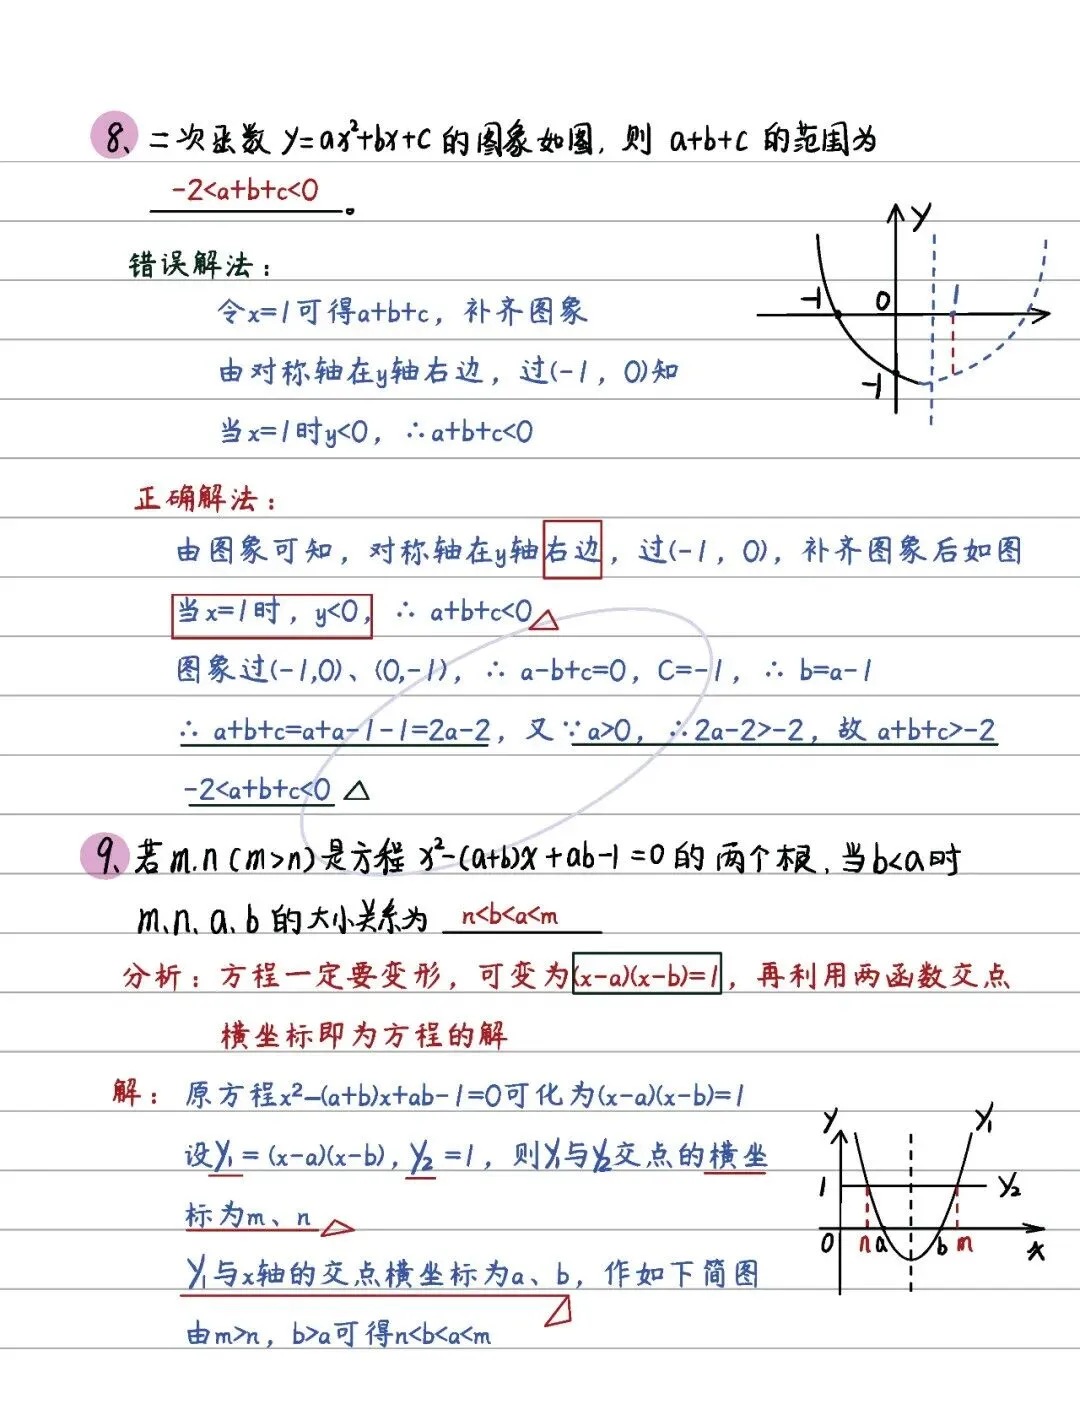 8、二次函数 y=ax²+bx+c 的图象如图, 则 a+b+c 的范围为
-2<a+b+c<0 。
错误解法:
令x=1可得a+b+c, 补齐图象
由对称轴在y轴右边, 过(-1, 0)知
当x=1时y<0, ∴a+b+c<0
y
-1
0
1
-1
正确解法:
由图象可知, 对称轴在y轴右边, 过(-1, 0), 补齐图象后如图
当x=1时, y<0, ∴ a+b+c<0△
图象过(-1,0)、(0,-1), ∴ a-b+c=0, C=-1, ∴ b=a-1
∴ a+b+c=a+a-1-1=2a-2, 又∵a>0, ∴2a-2>-2, 故 a+b+c>-2
-2<a+b+c<0 △
9、若m.n(m>n)是方程 x²-(a+b)x+ab-1=0的两个根, 当b<a时
m、n、a、b的大小关系为 n<b<a<m
分析: 方程一定要变形, 可变为(x-a)(x-b)=1, 再利用两函数交点
横坐标即为方程的解
解: 原方程x²-(a+b)x+ab-1=0可化为(x-a)(x-b)=1
设y₁=(x-a)(x-b), y₂=1, 则y₁与y₂交点的横坐
标为m、n
y₁与x轴的交点横坐标为a、b, 作如下简图
由m>n, b>a可得n<b<a<m
y
y₁
1
y₂
0 n a b m x